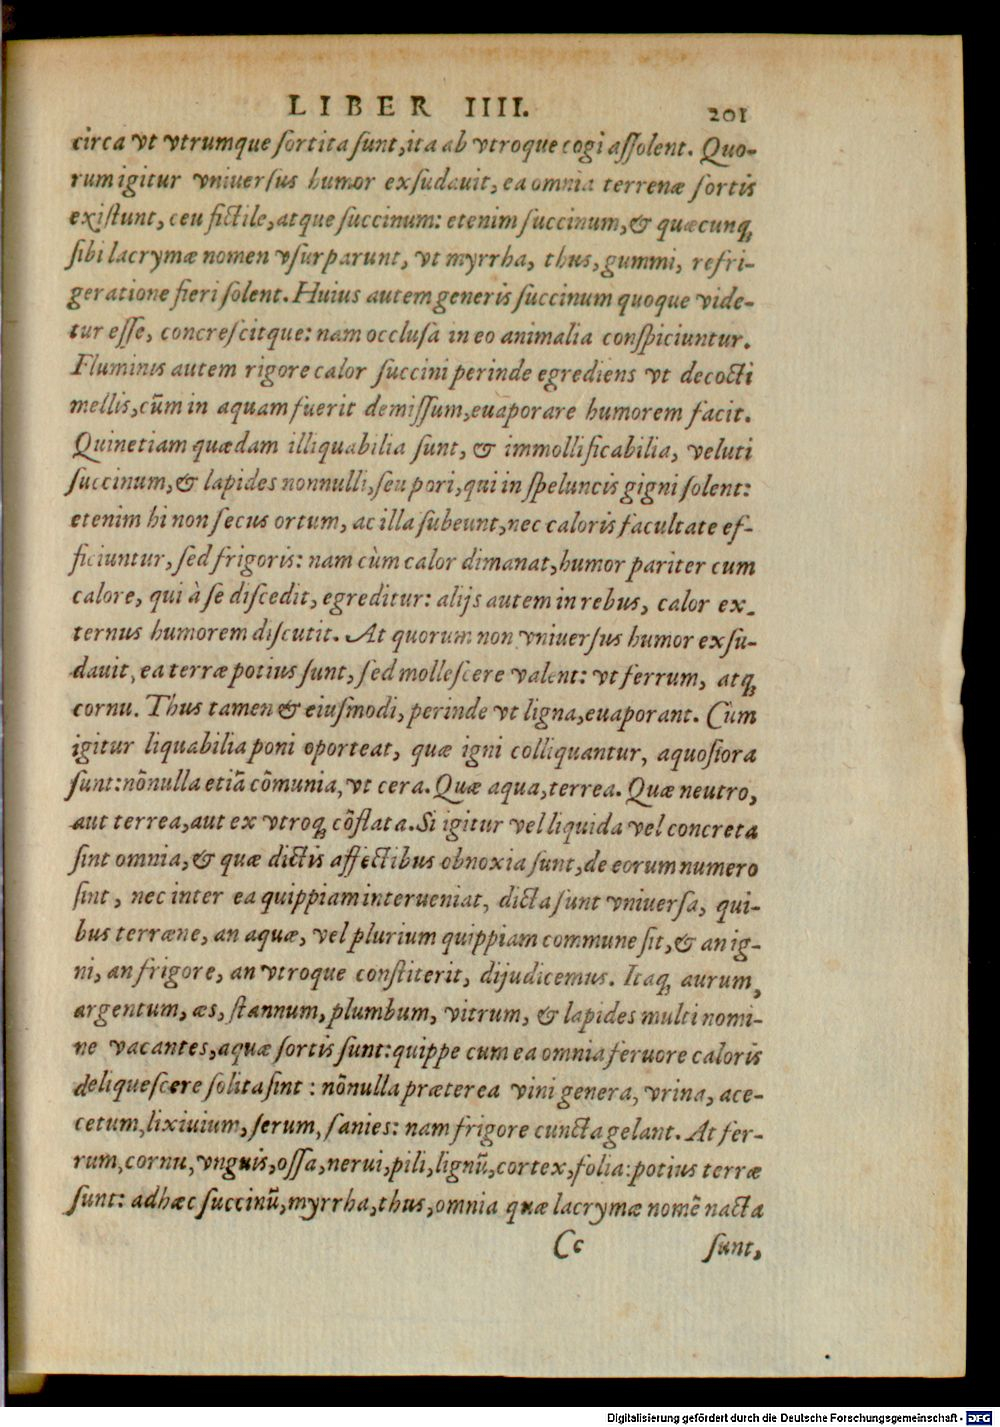 LIBER IIII. 201
circa vt vtrumque ſortita ſunt, ita ab vtroque cogi aſſolent. Quo-
rum igitur vniuerſus humor exſudauit, ea omnia terrenæ ſortis
exiſtunt, ceu fictile, atque ſuccinum: etenim ſuccinum, & quæcunq́;
ſibi lacrymæ nomen vſurparunt, vt myrrha, thus, gummi, refri-
geratione fieri ſolent. Huius autem generis ſuccinum quoque vide-
tur eſſe, concreſcitque: nam occluſa in eo animalia conſpiciuntur.
Fluminis autem rigore calor ſuccini perinde egrediens vt decocti
mellis, cũm in aquam fuerit demiſſum, euaporare humorem facit.
Quinetiam quædam illiquabilia ſunt, & immollificabilia, veluti
ſuccinum, & lapides nonnulli, ſeu pori, qui in ſpeluncis gigni ſolent:
etenim hi non ſecus ortum, ac illa ſubeunt, nec caloris facultate ef-
ficiuntur, ſed frigoris: nam cùm calor dimanat, humor pariter cum
calore, qui à ſe diſcedit, egreditur: alijs autem in rebus, calor ex-
ternus humorem diſcutit. At quorum non vniuerſus humor exſu-
dauit, ea terræ potius ſunt, ſed molleſcere valent: vt ferrum, atq́;
cornu. Thus tamen & eiuſmodi, perinde vt ligna, euaporant. Cùm
igitur liquabilia poni oporteat, quæ igni colliquantur, aquoſiora
ſunt: nõnulla etiã cõmunia, vt cera. Quæ aqua, terrea. Quæ neutro,
aut terrea, aut ex vtroq; cõſlata. Si igitur vel liquida vel concreta
ſint omnia, & quæ dictis affectibus obnoxia ſunt, de eorum numero
ſint, nec inter ea quippiam interueniat, dicta ſunt vniuerſa, qui-
bus terræne, an aquæ, vel plurium quippiam commune ſit, & an ig-
ni, an frigore, an vtroque conſtiterit, dijudicemus. Itaq; aurum,
argentum, æs, ſtannum, plumbum, vitrum, & lapides multi nomi-
ne vacantes, aquæ ſortis ſunt: quippe cum ea omnia feruore caloris
deliqueſcere ſolita ſint: nõnulla præterea vini genera, vrina, ace-
cetum, lixiuium, ſerum, ſanies: nam frigore cuncta gelant. At fer-
rum, cornu, vnguis, oſſa, nerui, pili, lignũ, cortex, folia: potius terræ
ſunt: adhæc ſuccinũ, myrrha, thus, omnia quæ lacrymæ nomẽ nacta
Cc ſunt,
Digitalisierung gefördert durch die Deutsche Forschungsgemeinschaft - DFG